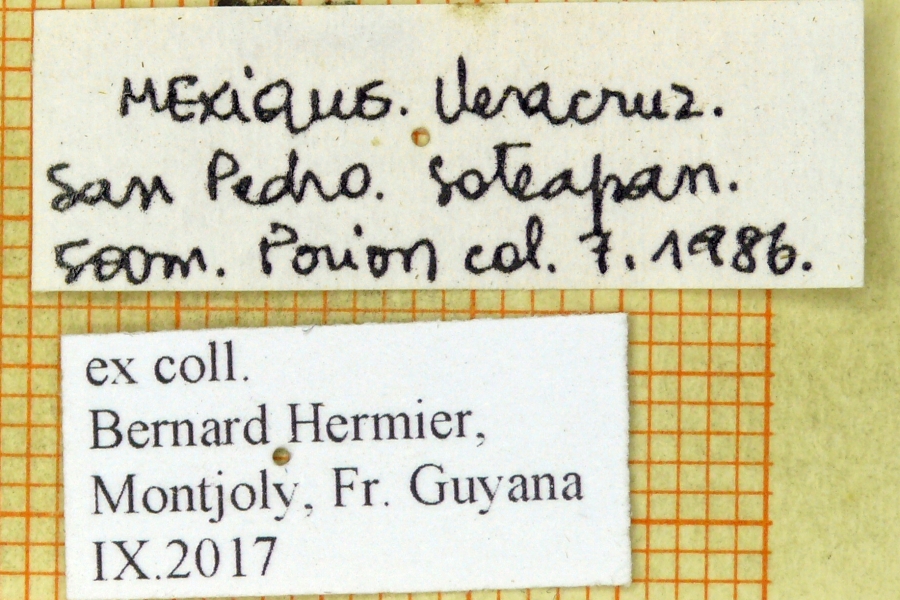 MEXIQUE. Veracruz.
San Pedro. Soteapan.
500m. Porion col. 7. 1986.
ex coll.
Bernard Hermier,
Montjoly, Fr. Guyana
IX.2017